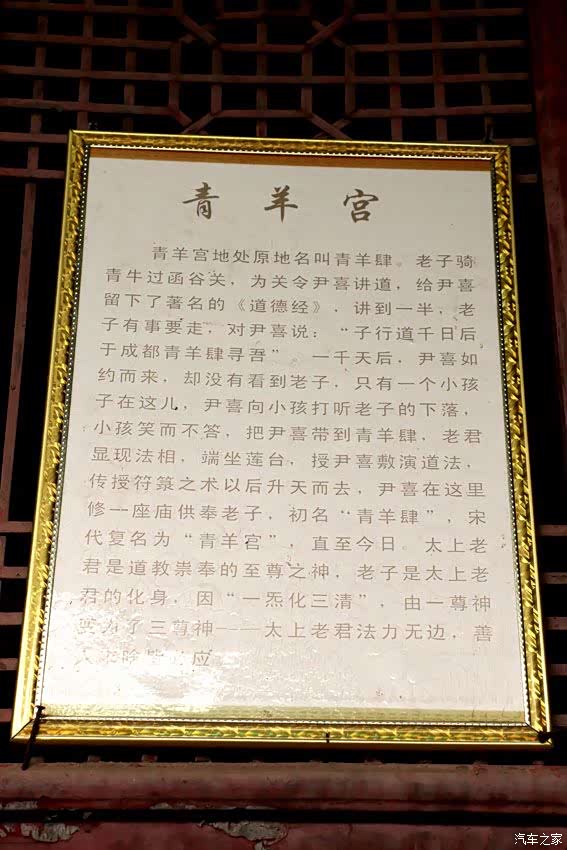 青羊宫
青羊宫地处原地名叫青羊肆。老子骑
青牛过函谷关，为关令尹喜讲道，给尹喜
留下了著名的《道德经》，讲到一半，老
子有事要走，对尹喜说：“子行道千日后
于成都青羊肆寻吾”。一千天后，尹喜如
约而来，却没有看到老子，只有一个小孩
子在这儿，尹喜向小孩打听老子的下落，
小孩笑而不答，把尹喜带到青羊肆，老君
显现法相，端坐莲台，授尹喜敷演道法，
传授符箓之术以后升天而去，尹喜在这里
修一座庙供奉老子，初名“青羊肆”，宋
代复名为“青羊宫”，直至今日。太上老
君是道教崇奉的至尊之神，老子是太上老
君的化身，因“一炁化三清”，由一尊神
变为了三尊神——太上老君法力无边，善
应
汽车之家